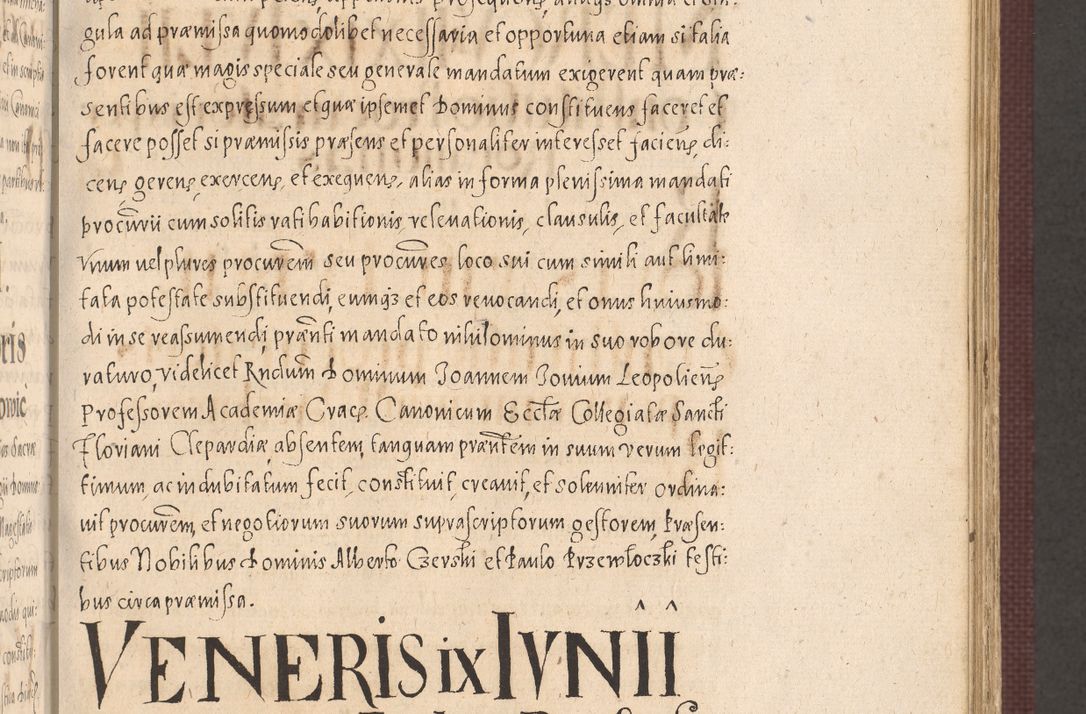 gula ad præmissa quomodolibet necessaria et opportuna etiam si talia
forent quæ magis speciale seu generale mandatum exigerent quam præ:
sentibus est expressum et quæ ipsemet Dominus constituens faceret et
facere posset si præmissis præsens et personaliter interesset facienę, di:
cenę gerenę, exercenę, et exequenę, alias in forma plenissima mandati
procūrii cum solitis rati habitionis, relevationis, clausulis, et facultate
Vnum vel plures procurēm seu procūres, loco sui cum simili aut limi:
tata potestate substituendi, eumqȝ et eos revocandi, et onus huiusmo:
di in se reassumendi, prænti mandato nihilominus in suo robore du:
raturo, videlicet Rndum Dominum Joannem Jonium Leopolienę
Professorem Academiæ Cracę Canonicum Ecctæ Collegiatæ Sancti
Floriani Clepardiæ, absentem, tanquam præntem in suum verum legit:
timum, ac indubitatum fecit, constituit, creavit, et solenniter ordina:
vit procurēm, et negotiorum suorum suprascriptorum gestorem, Præsen:
tibus Nobilibus Dominis Alberto Czerski et Paulo Przewłoczki testi:
bus circa præmissa.
VENERIS IX IVNII